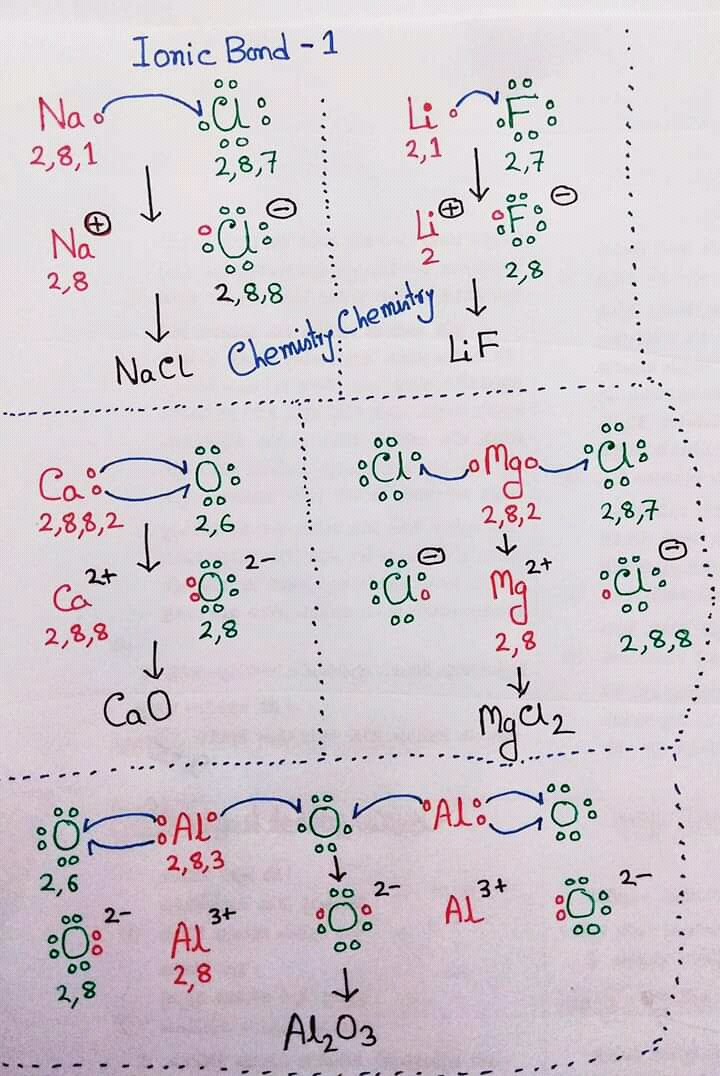 Ionic Bond - 1
Na Cl
2,8,1 2,8,7
Na⊕ Cl⊖
2,8 2,8,8
NaCl
Li F
2,1 2,7
Li⊕ F⊖
2 2,8
LiF
Chemistry Chemistry
Ca O
2,8,8,2 2,6
Ca2+ O2-
2,8,8 2,8
CaO
Cl Mg Cl
2,8,2 2,8,7
Cl⊖ Mg2+ Cl⊖
2,8 2,8,8
MgCl2
O Al O Al O
2,6 2,8,3
O2- Al3+ O2- Al3+ O2-
2,8 2,8
Al2O3